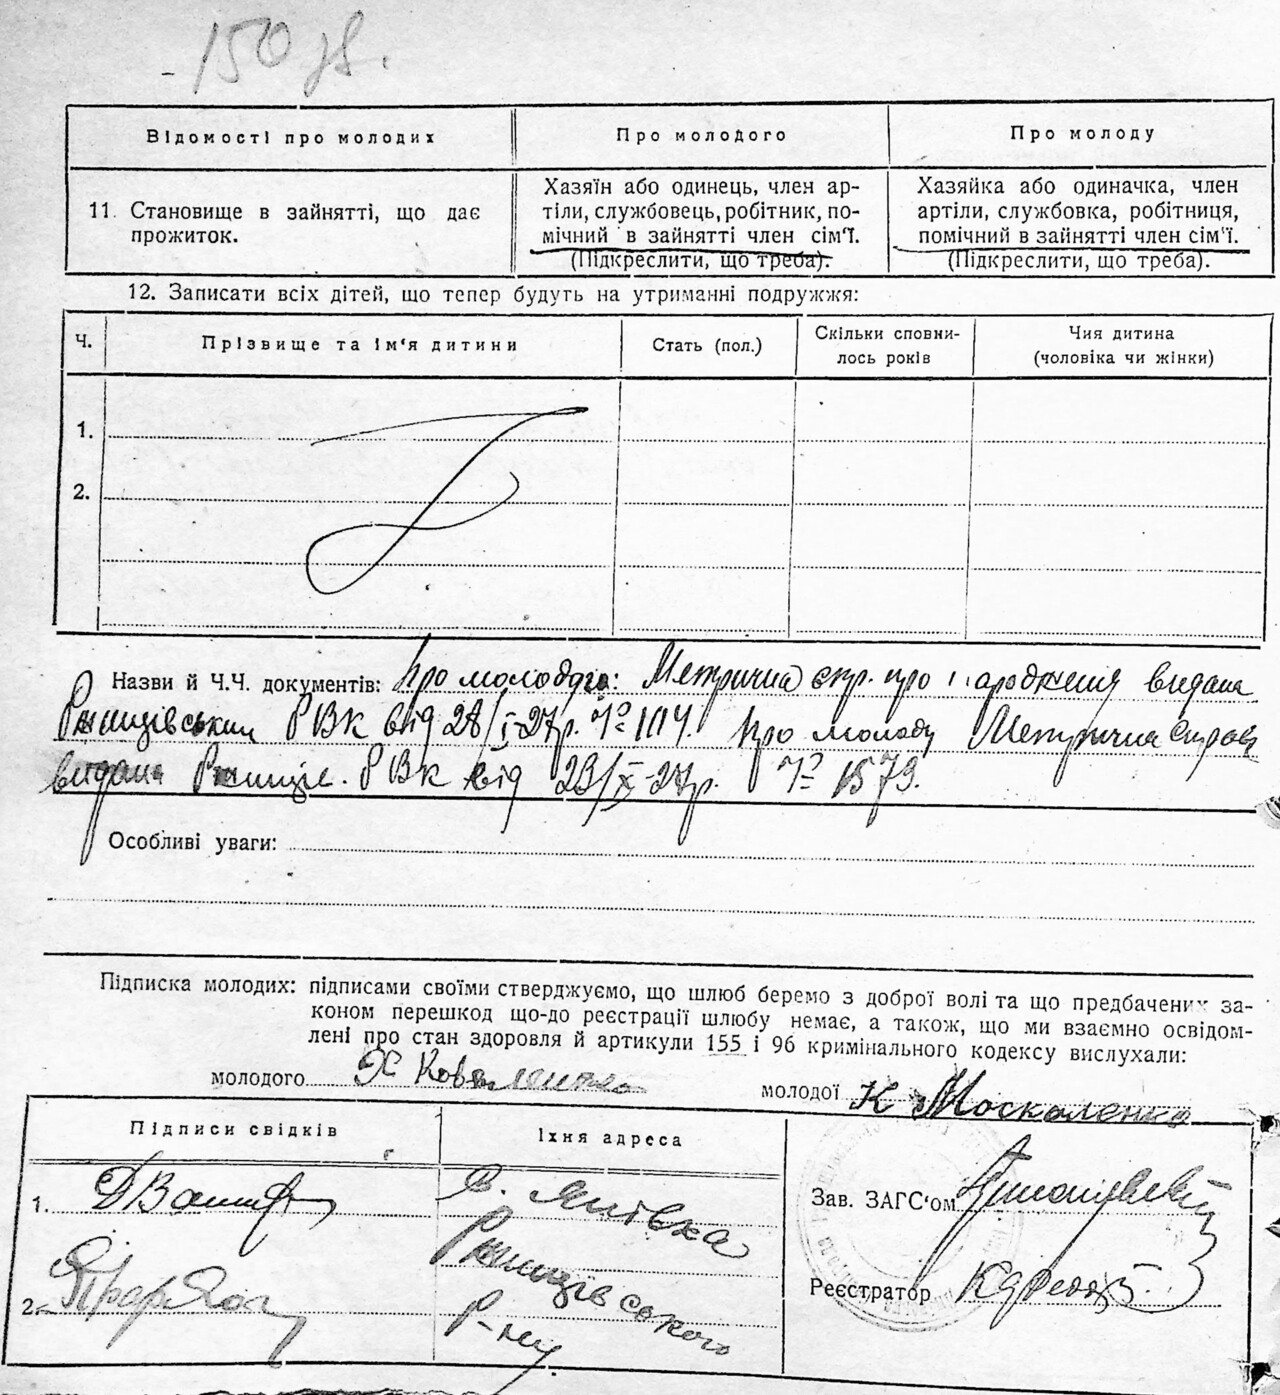 - 150 зв.
Відомості про молодих
Про молодого
Про молоду
11. Становище в зайнятті, що дає
прожиток.
Хазяїн або одинець, член ар-
тіли, службовець, робітник, по-
мічний в зайнятті член сім'ї.
(Підкреслити, що треба).
Хазяйка або одиначка, член
артіли, службовка, робітниця,
помічний в зайнятті член сім'ї.
(Підкреслити, що треба).
12. Записати всіх дітей, що тепер будуть на утриманні подружжя:
Ч.
Прізвище та ім'я дитини
Стать (пол.)
Скільки сповни-
лось років
Чия дитина
(чоловіка чи жінки)
1.
2.
Назви й Ч.Ч. документів: Про молодого: Метрична спр. про народження видана
РВК від 28/І-27р. № 1114. Про молоду Метрична справ
видана РВК від 23/ІХ-27р. № 1573.
Особливі уваги:
Підписка молодих: підписами своїми стверджуємо, що шлюб беремо з доброї волі та що предбачених за-
коном перешкод що-до реєстрації шлюбу немає, а також, що ми взаємно освідом-
лені про стан здоровля й артикули 155 і 96 кримінального кодексу вислухали:
молодого Х Коваленко
молодої К Москаленко
Підписи свідків
Їхня адреса
1.
с. Янівка
2.
р-ну
Зав. ЗАГС'ом
Реєстратор